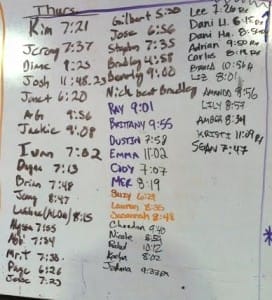 Thurs
Kim 7:21
Jerome 7:37
Diane 8:23
Josh 11:48.23
Janet 6:20
Abi 9:56
Jackie 9:08
Ivan 7:02
7:13
Brian 7:48
Jenny 8:47
8:15
Alyssa 7:55
Abi 7:34
Mr.T 7:38
Page 6:26
Jose 7:23
Gilbert 5:50
Jose 6:56
Stephen 7:35
Bradley 4:58
Beverly 9:00
Nick beat Bradley
RAY 9:01
BRITTANY 9:55
DUSTIN 7:58
EMMA 11:02
CODY 7:07
MER 8:19
Suzy 6:29
Lauren 8:35
Savannah 8:48
9:40
Nicole 8:59
Robd 10:12
Karlyn 8:02
Johna 9:33
Lee
Dani Li. 6:15
Dani Ha.
Adrian 9:50
Carlos
10:56
LIZ 8:01
AMANDA 9:56
LILY 8:57
AMBER 8:34
KRISTI 11:09
SEAN 7:47